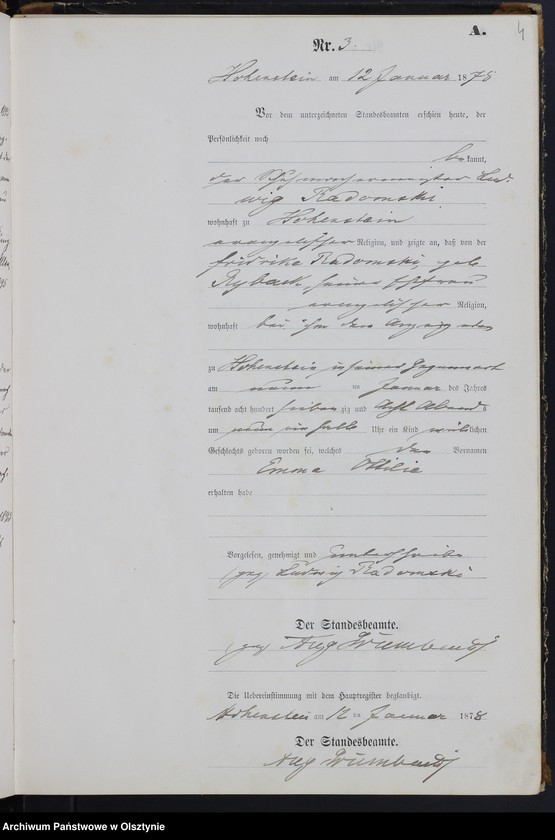 A.
4
Nr. 3.
Hohenstein am 12 Januar 1878
Vor dem unterzeichneten Standesbeamten erschien heute, der
Persönlichkeit nach
bekannt,
der Schuhmachermeister Lud-
wig Radomski
wohnhaft zu Hohenstein
evangelischer Religion, und zeigte an, daß von der
Fridrike Radomski, geb
Ryback, seiner Ehefrau
evangelischer Religion,
wohnhaft bei ihm dem Anzeigenden
zu Hohenstein in seiner Gegenwart
am neun ten Januar des Jahres
tausend acht hundert siebenzig und Acht Abends
um neun ein halb Uhr ein Kind weiblichen
Geschlechts geboren worden sei, welches den Vornamen
Emma Ottilie
erhalten habe
Vorgelesen, genehmigt und unterschrieben
gez Ludwig Radomski
Der Standesbeamte.
gez
Die Uebereinstimmung mit dem Hauptregister beglaubigt.
Hohenstein am 12 ten Januar 1878
Der Standesbeamte.
Archiwum Państwowe w Olsztynie